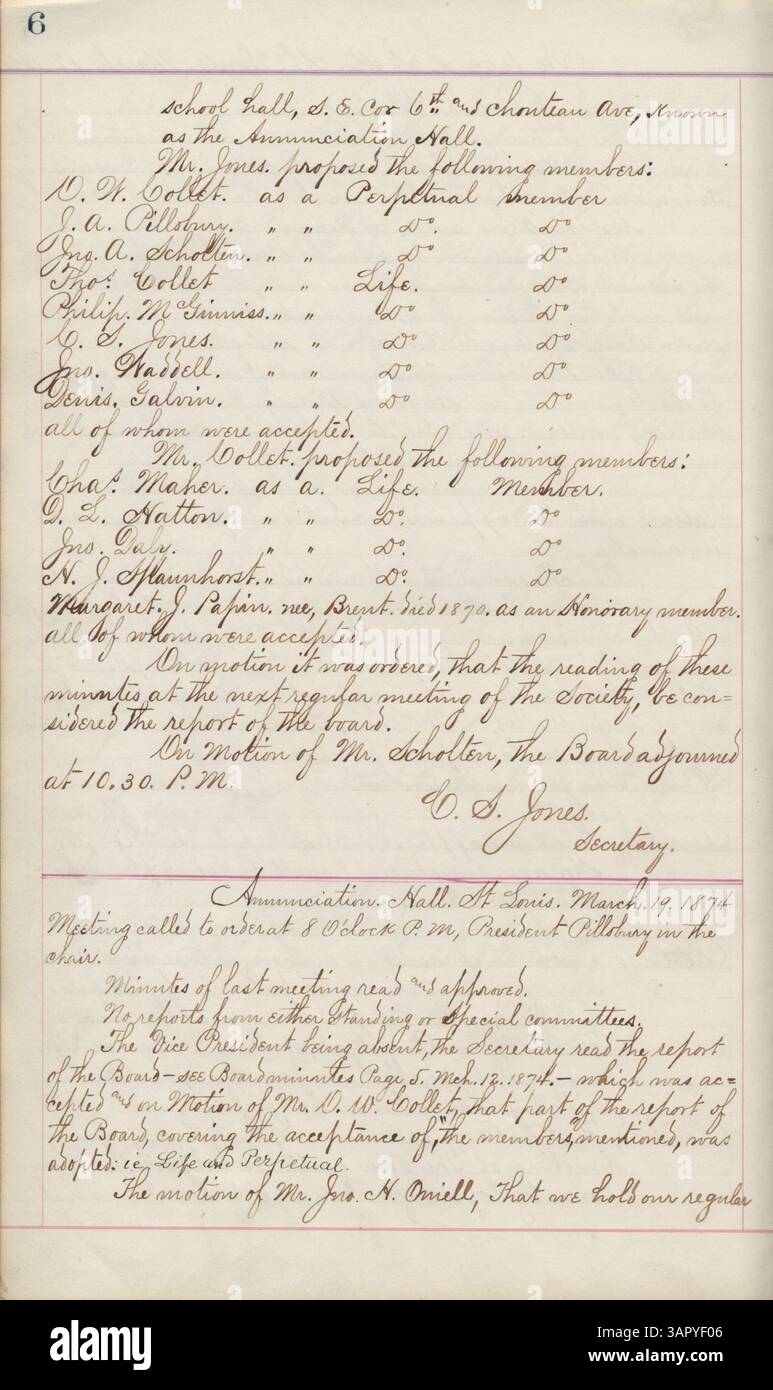 6
school hall, S. E. Cor 6th and Chouteau Ave, Known
as the Annunciation Hall.
Mr. Jones. proposed the following members:
O. W. Collet. as a Perpetual member
J. A. Pillsbury. " " Do. Do
Jno. A. Scholten. " " Do Do
Thos. Collet " " Life. Do
Philip. McGinniss. " " Do Do
C. S. Jones. " " Do Do
Jno. Waddell. " " Do Do
Denis. Galvin. " " Do Do
all of whom were accepted.
Mr. Collet. proposed the following members:
Chas. Maher. as a. Life. Member.
D. L. Hatton. " " Do. Do
Jno. Daly. " " Do. Do
H. J. Splaunhorst. " " Do. Do
Margaret. J. Papin. nee, Brent. died 1870. as an Honorary member.
all of whom were accepted.
On motion it was ordered, that the reading of these
minutes at the next regular meeting of the Society, be con=
sidered the report of the board.
On Motion of Mr. Scholten, the Board adjourned
at 10.30. P.M.
C. S. Jones.
Secretary.
Annunciation. Hall. St Louis. March. 19. 1874
Meeting called to order at 8 O'clock P.M, President Pillsbury in the
chair.
Minutes of last meeting read and approved.
No reports from either standing or special committees.
The Vice President being absent, the Secretary read the report
of the Board – see Board minutes Page 5. Mch. 12. 1874. – which was ac=
cepted and on Motion of Mr. O. W. Collet, that part of the report of
the Board, covering the acceptance of, "the members," mentioned, was
adopted: ie, Life and Perpetual.
The motion of Mr. Jno. H. Oniell, That we hold our regular
alamy
Image ID: 3APYF06
www.alamy.com